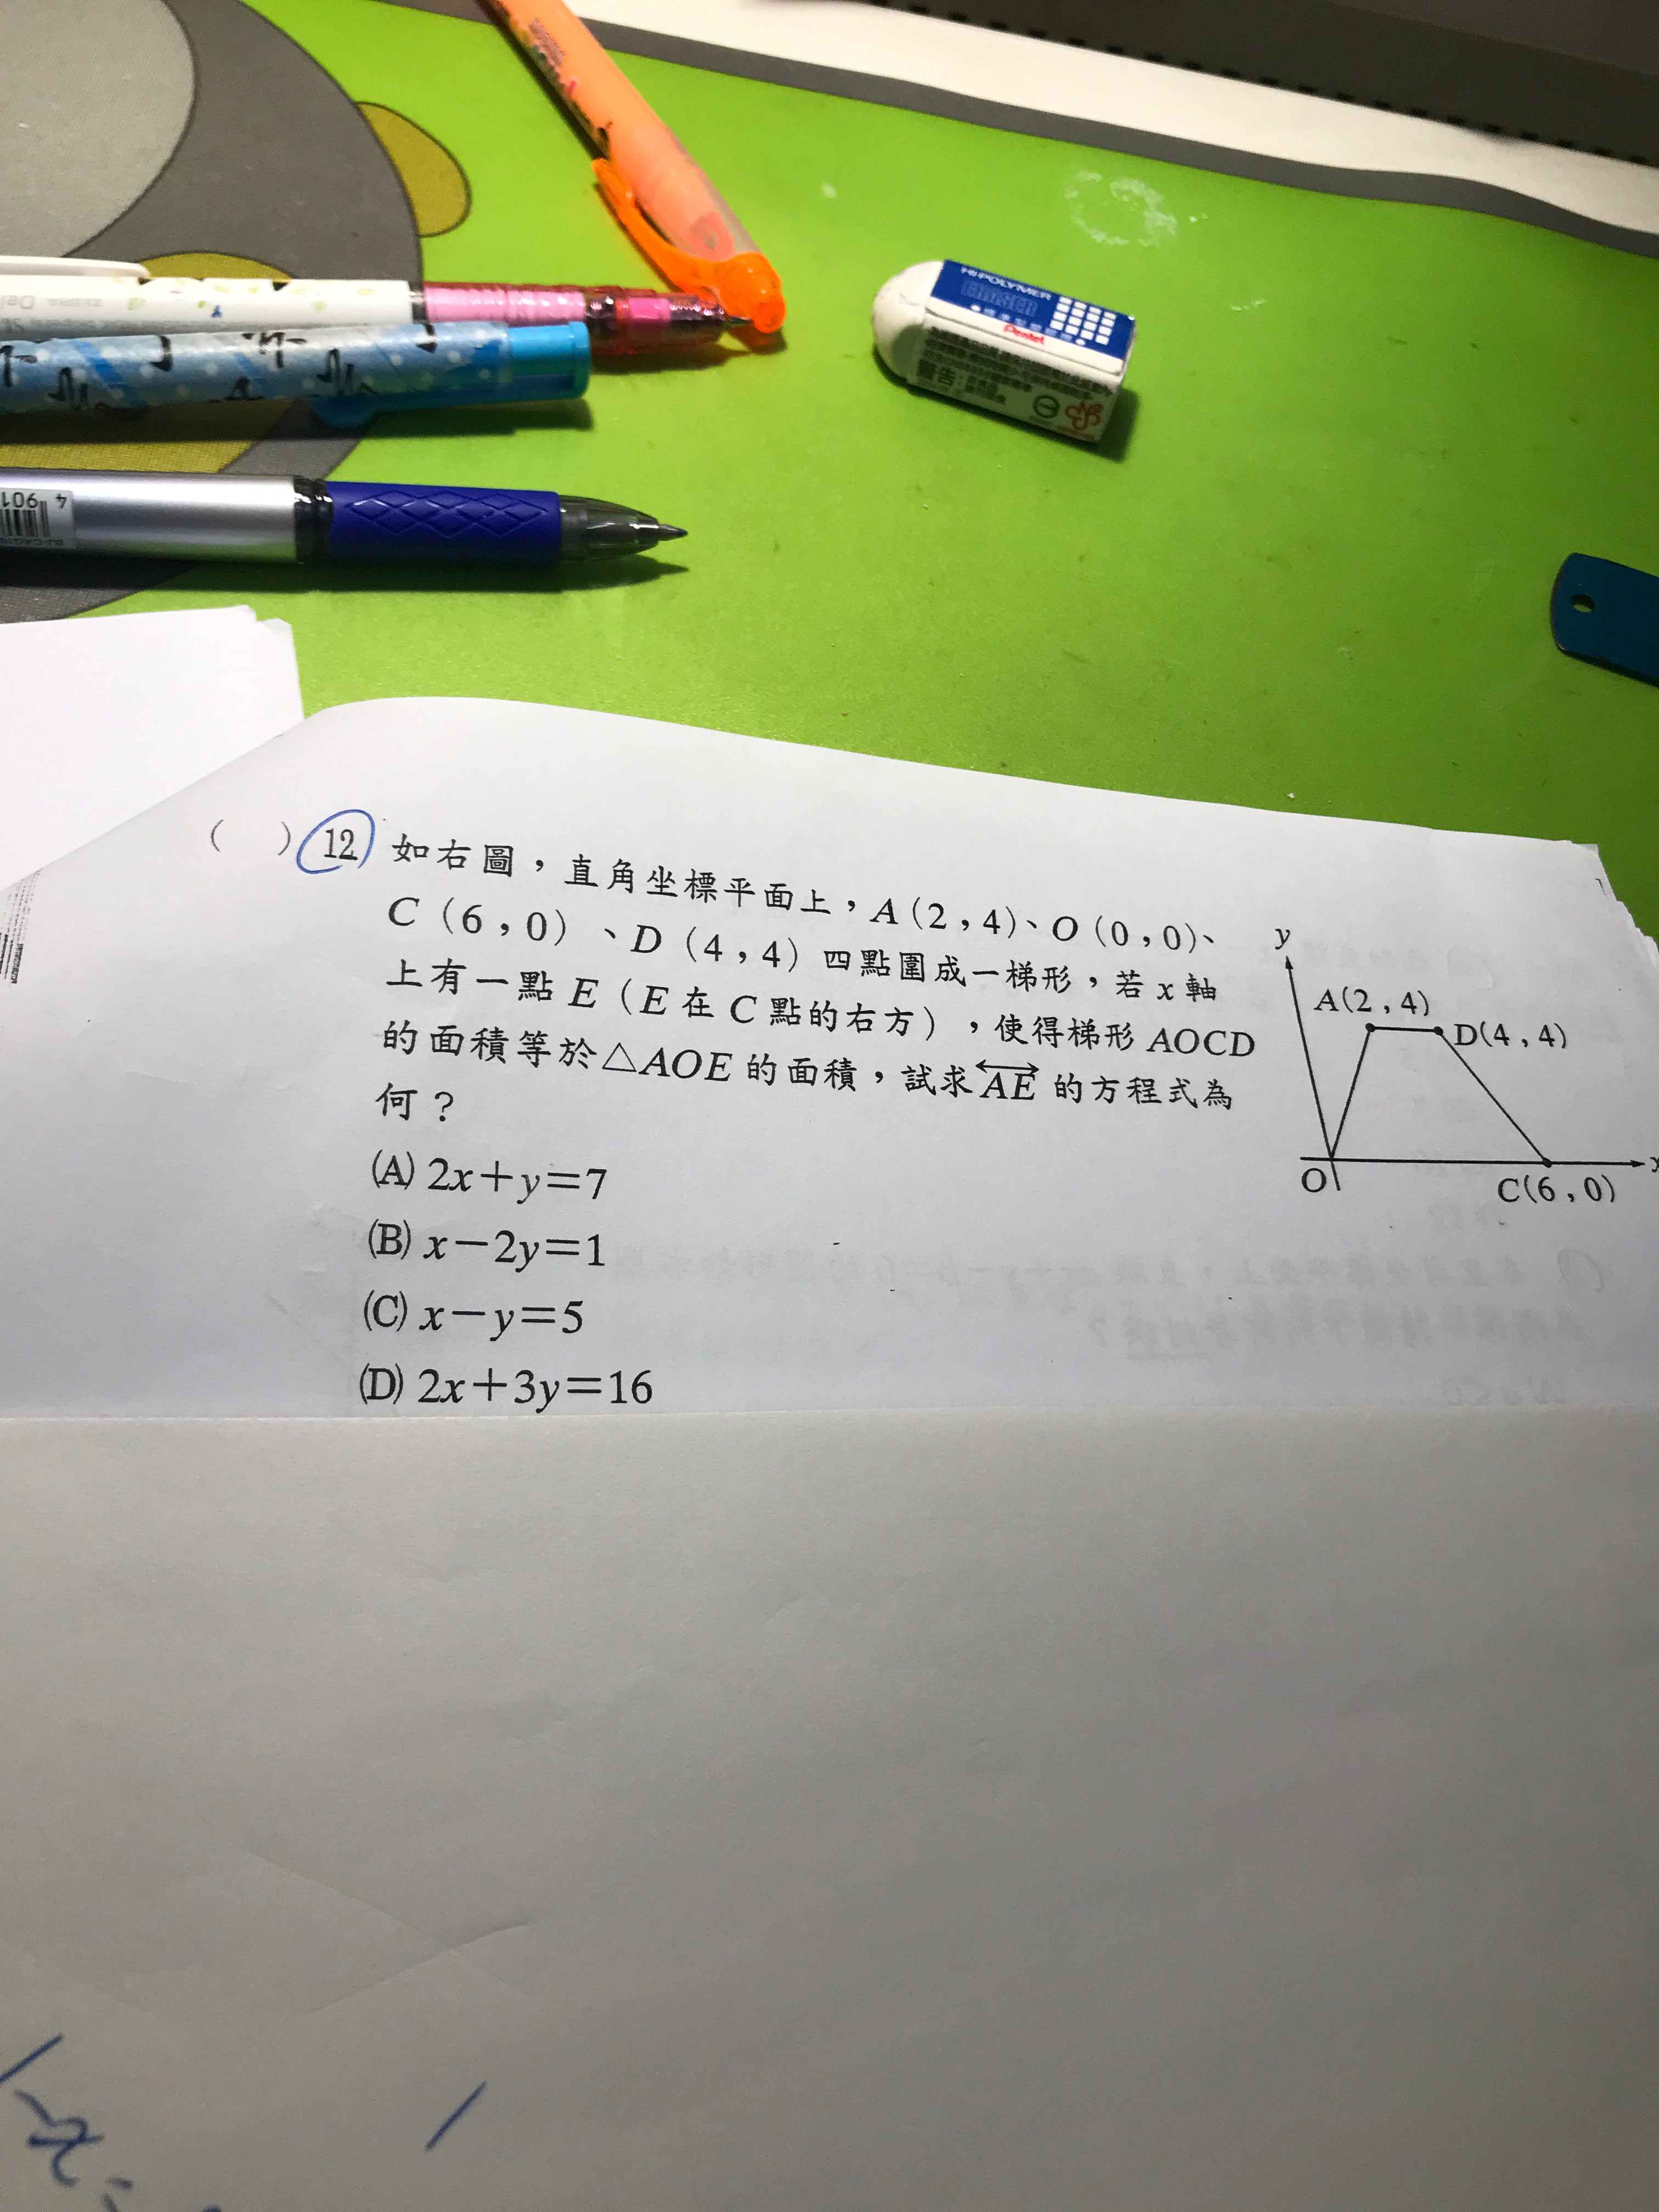 HI-POLYMER
ERASER
Pentel
警告
4 901
( ) 12 如右圖，直角坐標平面上，A(2，4)、O(0，0)、
C(6，0)、D(4，4) 四點圍成一梯形，若 x 軸
上有一點 E（E 在 C 點的右方），使得梯形 AOCD
的面積等於△AOE 的面積，試求 AE 的方程式為
何？
(A) 2x＋y＝7
(B) x－2y＝1
(C) x－y＝5
(D) 2x＋3y＝16
y
A(2，4)
D(4，4)
O
C(6，0)
x